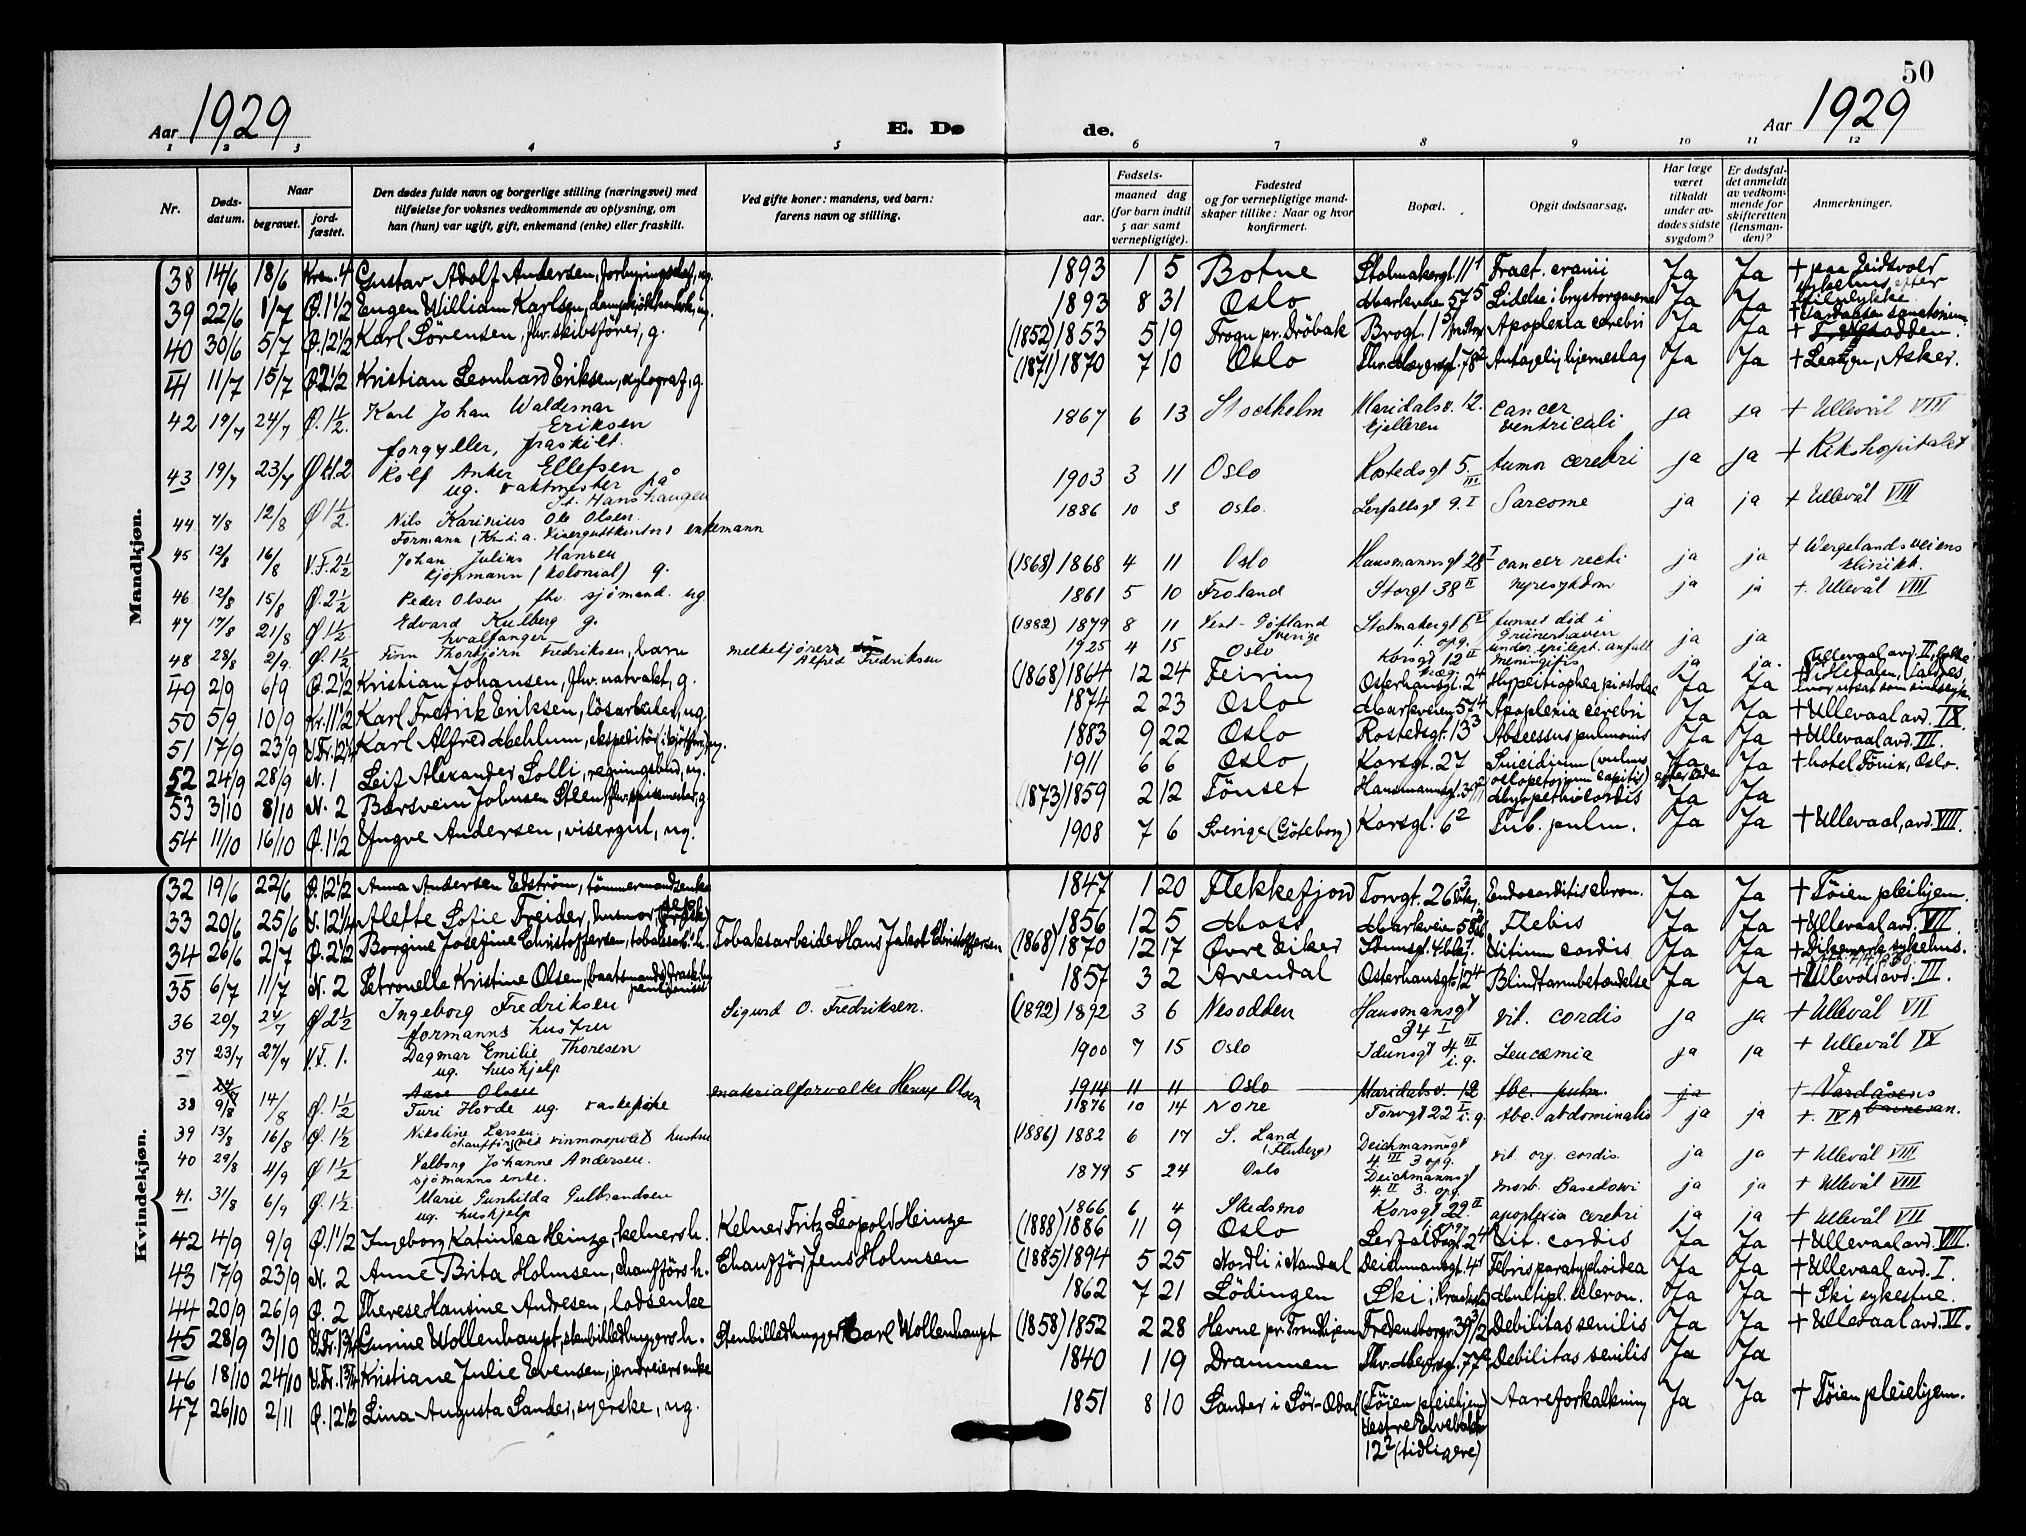 50
Aar 1929
E. Dø de.
Aar 1929
1 2 3 4 5 6 7 8 9 10 11 12
Nr.
Døds-datum.
Naar
begravet.
jord-fæstet.
Den dødes fulde navn og borgerlige stilling (næringsvei) med
tilføielse for voksnes vedkommende av oplysning, om
han (hun) var ugift, gift, enkemand (enke) eller fraskilt.
Ved gifte koner: mandens, ved barn:
farens navn og stilling.
Fødsels-
aar.
maaned dag
(for barn indtil
5 aar samt
vernepligtige).
Fødested
og for vernepligtige mand-
skaper tillike: Naar og hvor
konfirmert.
Bopæl.
Opgit dødsaarsag.
Har læge
været
tilkaldt
under av-
dødes sidste
sygdom?
Er dødsfal-
det anmeldt
av vedkom-
mende for
skifteretten
(lensman-
den)?
Anmerkninger.
Mandkjøn.
38 14/6 18/6 Krem. 4 Gustav Adolf Andersen, ug. 1893 1 5 Botne Stolmakergt. 11 1 Fract. cranii Ja Ja + paa Eidsvold sykehus efter ulykke.
39 22/6 1/7 Ø. 1 1/2 Eugen William Karlsen, ug. 1893 8 31 Oslo Markveien 57 5 Lidelse i brystorganerne Ja Ja + Vardaasen sanatorium
40 30/6 5/7 Ø. 12 1/2 Karl Sørensen, fhv. skibsfører, g. (1852) 1853 5 19 Frogn pr. Drøbak Brogt. 1 Apoplexia cerebri Ja Ja +
41 11/7 15/7 Ø. 2 1/2 Kristian Leonhard Eriksen, xylograf, g. (1871) 1870 7 10 Oslo Thv. Meyersgt. 78 2 Antagelig hjerneslag Ja Ja + Asker.
42 19/7 24/7 Ø. 1 1/2. Karl Johan Waldemar Eriksen
forgyller, fraskilt. 1867 6 13 Stockholm Maridalsv. 12. kjelleren cancer ventriculi ja ja + Ullevål VIII
43 19/7 23/7 Ø kl. 2 Rolf Anker Ellefsen
ug. vaktmester på St. Hanshaugen 1903 3 11 Oslo Rostedsgt 5. III tumor cerebri ja ja + Rikshospitalet
44 7/8 12/8 Ø 1 1/2. Nils Karinius Ole Olsen
Formann (Kr.i.a. Visergutkontor) enkemann 1886 10 3 Oslo. Lerfallsgt 9. I Sarcome ja ja + Ullevål VIII
45 12/8 16/8 V.F. 2 1/2 Johan Julius Hansen
kjøpmann (kolonial) g. (1868) 1868 4 11 Oslo Hausmannsgt 28 I cancer recti ja ja + Wergelandsveiens klinikk.
46 12/8 15/8 Ø. 2 1/2 Peder Olsen fhv. sjømand. ug 1861 5 10 Froland Storgt 38 II nyresykdom ja ja + Ullevål VIII
47 17/8 21/8 Ø 1 1/2. Edvard Kulberg g.
hvalfanger (1882) 1879 8 11 Vest-Götland Sverige Stolmakergt 6 II 1. opg. funnet død i Grünerhaven ja ja
48 28/8 2/9. Ø. 1 1/2 Finn Thorbjørn Fredriksen, barn melkekjører Alfred Fredriksen 1925 4 15 Oslo Korsgt 12 II under epilept. anfall meningitis ja ja.
49 2/9 6/9 Ø. 2 1/2 Kristian Johansen, fhv. natvakt, g. (1868) 1864 12 24 Feiring Osterhausgt. 2 4 Ja Ja
50 5/9 10/9 Kr. 11 1/2 Karl Fredrik Eriksen, løsarbeider, ug. 1874 2 23 Oslo Markveien 57 4 Apoplexia cerebri Ja Ja + Ullevaal avd. IX
51 17/9 23/9 V.Fr. 12 1/4 Karl Alfred Mehlum, ekspeditør, ug. 1883 9 22 Oslo Rostedsgt. 13 3 Abscessus pulmonis Ja Ja + Ullevaal avd. III.
52 24/9 28/9 N. 1 Leif Alexander Solli, regningsbud, ug. 1911 6 6 Oslo Korsgt. 27 Suicidium (vulnus sclopetarium capitis) Ja efter døden Ja + hotel Fönix, Oslo.
53 3/10 8/10 N. 2 Barsvein Johnsen Steen, g. (1873) 1859 2 12 Tönset Hausmannsgt. Ja Ja
54 11/10 16/10 Ø. 1 1/2 Yngve Andersen, visergut, ug. 1908 7 6 Sverige (Göteborg) Korsgt. 6 2 Tub. pulm. Ja Ja + Ullevaal, avd. VIII.
Kvindekjøn.
32 19/6 22/6 Ø. 12 1/2 Anna Andersen Edström, tömmermandsenke 1847 1 20 Flekkefjord Torvgt. 26 Endocarditis chron. Ja Ja + Töien pleiehjem.
33 20/6 25/6 V. 12 1/4 Alette Sofie Freider, husmor 1856 12 5 Moss Markveien 58 Flebis Ja Ja + Ullevaal avd. VII
34 26/6 2/7 Ø. 2 1/2 Borgine Josefine Christoffersen, tobaksarb. h. Tobaksarbeider Hans Jakob Christoffersen (1868) 1870 12 17 Øvre Eiker Vitium cordis Ja Ja + Dikemark sykehus.
35 6/7 11/7 N. 2 Petronelle Kristine Olsen, 1857 3 2 Arendal Osterhausgt. 12 4 Blindtarmbetændelse Ja Ja + Ullevål avd. III.
36 20/7 24/7 Ø 2 1/2 Ingeborg Fredriksen
formanns hustru Sigurd O. Fredriksen. (1892) 1892 3 6 Nesodden Hausmansgt 34 I vit. cordis ja ja + Ullevål VII
37 23/7 27/7 V.F. 1. Dagmar Emilie Thoresen
ug. hushjelp 1900 7 15 Oslo Idunsgt 4 III i.g. Leucæmia ja ja + Ullevål IX
24/7 Aase Olsen materialforvalter Henry Olsen 1914 11 11 Oslo Maridalsv. 12 tbc. pulm. ja + Vardåsens barnesan.
38 9/8 14/8 Ø. 1 1/2 Turi Hovde ug. vaskepike 1876 10 14 Nore Torvgt 22 I i.g. tbc. abdominalis ja ja +. IV A
39 13/8 16/8 Ø. 1 1/2 Nikoline Larsen
chauffør ved vinmonopolet hustru (1886) 1882 6 17 S. Land (Fluberg) Deichmannsgt 4. III 3 opg. vit. org. cordis. ja ja + Ullevål VIII
40 29/8 4/9 Ø 1 1/2 Valborg Johanne Andersen.
sjømanns enke. 1879 5 24 Oslo Deichmannsgt 4. II 3. opg. morb. Basedowi ja ja + Ullevål VIII
41. 31/8 6/9 Ø. 1 1/2. Marie Gunhilda Gulbrandsen
ug. hushjelp 1866 6 4 Skedsmo Korsgt 22 II apoplexia cerebri ja ja + Ullevål VII
42 4/9 9/9 Ø. 1 1/2 Ingeborg Katinka Heinze, kelners h. Kelner Fritz Leopold Heinze (1888) 1886 11 9 Oslo Lerfaldsgt. 2 4 Vit. cordis Ja Ja + Ullevaal avd. VIII.
43 17/9 23/9 N. 2 Anne Brita Holmsen, chaufførs h. Chauffør Jens Holmsen (1885) 1894 5 25 Nordli i Namdal Deichmansgt. 4 1 Febris paratyphoidea Ja Ja + Ullevaal avd. I.
44 20/9 26/9 Ø. 2 Therese Hansine Andresen, lodsenke 1862 7 21 Lödingen Ski i Kraakstad Multipl. scleron. Ja Ja + Ski sykestue.
45 28/9 3/10 V.Fr. 13/4 Gurine Wollenhaupt, stenbilledhuggers h. Stenbilledhugger Carl Wollenhaupt (1858) 1852 2 28 Hevne pr. Trondhjem Fredensborgv. 39 3/2 Debilitas senilis Ja Ja + Ullevaal avd. VI.
46 18/10 24/10 V.Fr. 13/4 Kristiane Julie Evensen, jerndreiers enke 1840 1 19 Drammen Thv. Meyersgt. 77 2 Debilitas senilis Ja Ja
47 26/10 2/11 Ø. 12 1/2 Lina Augusta Sander, syerske, ug. 1851 8 10 Sander i Sör-Odal (Töien pleiehjem) Vestre Elvebakke 12 2 (tidligere) Aareforkalkning Ja Ja + Töien pleiehjem.